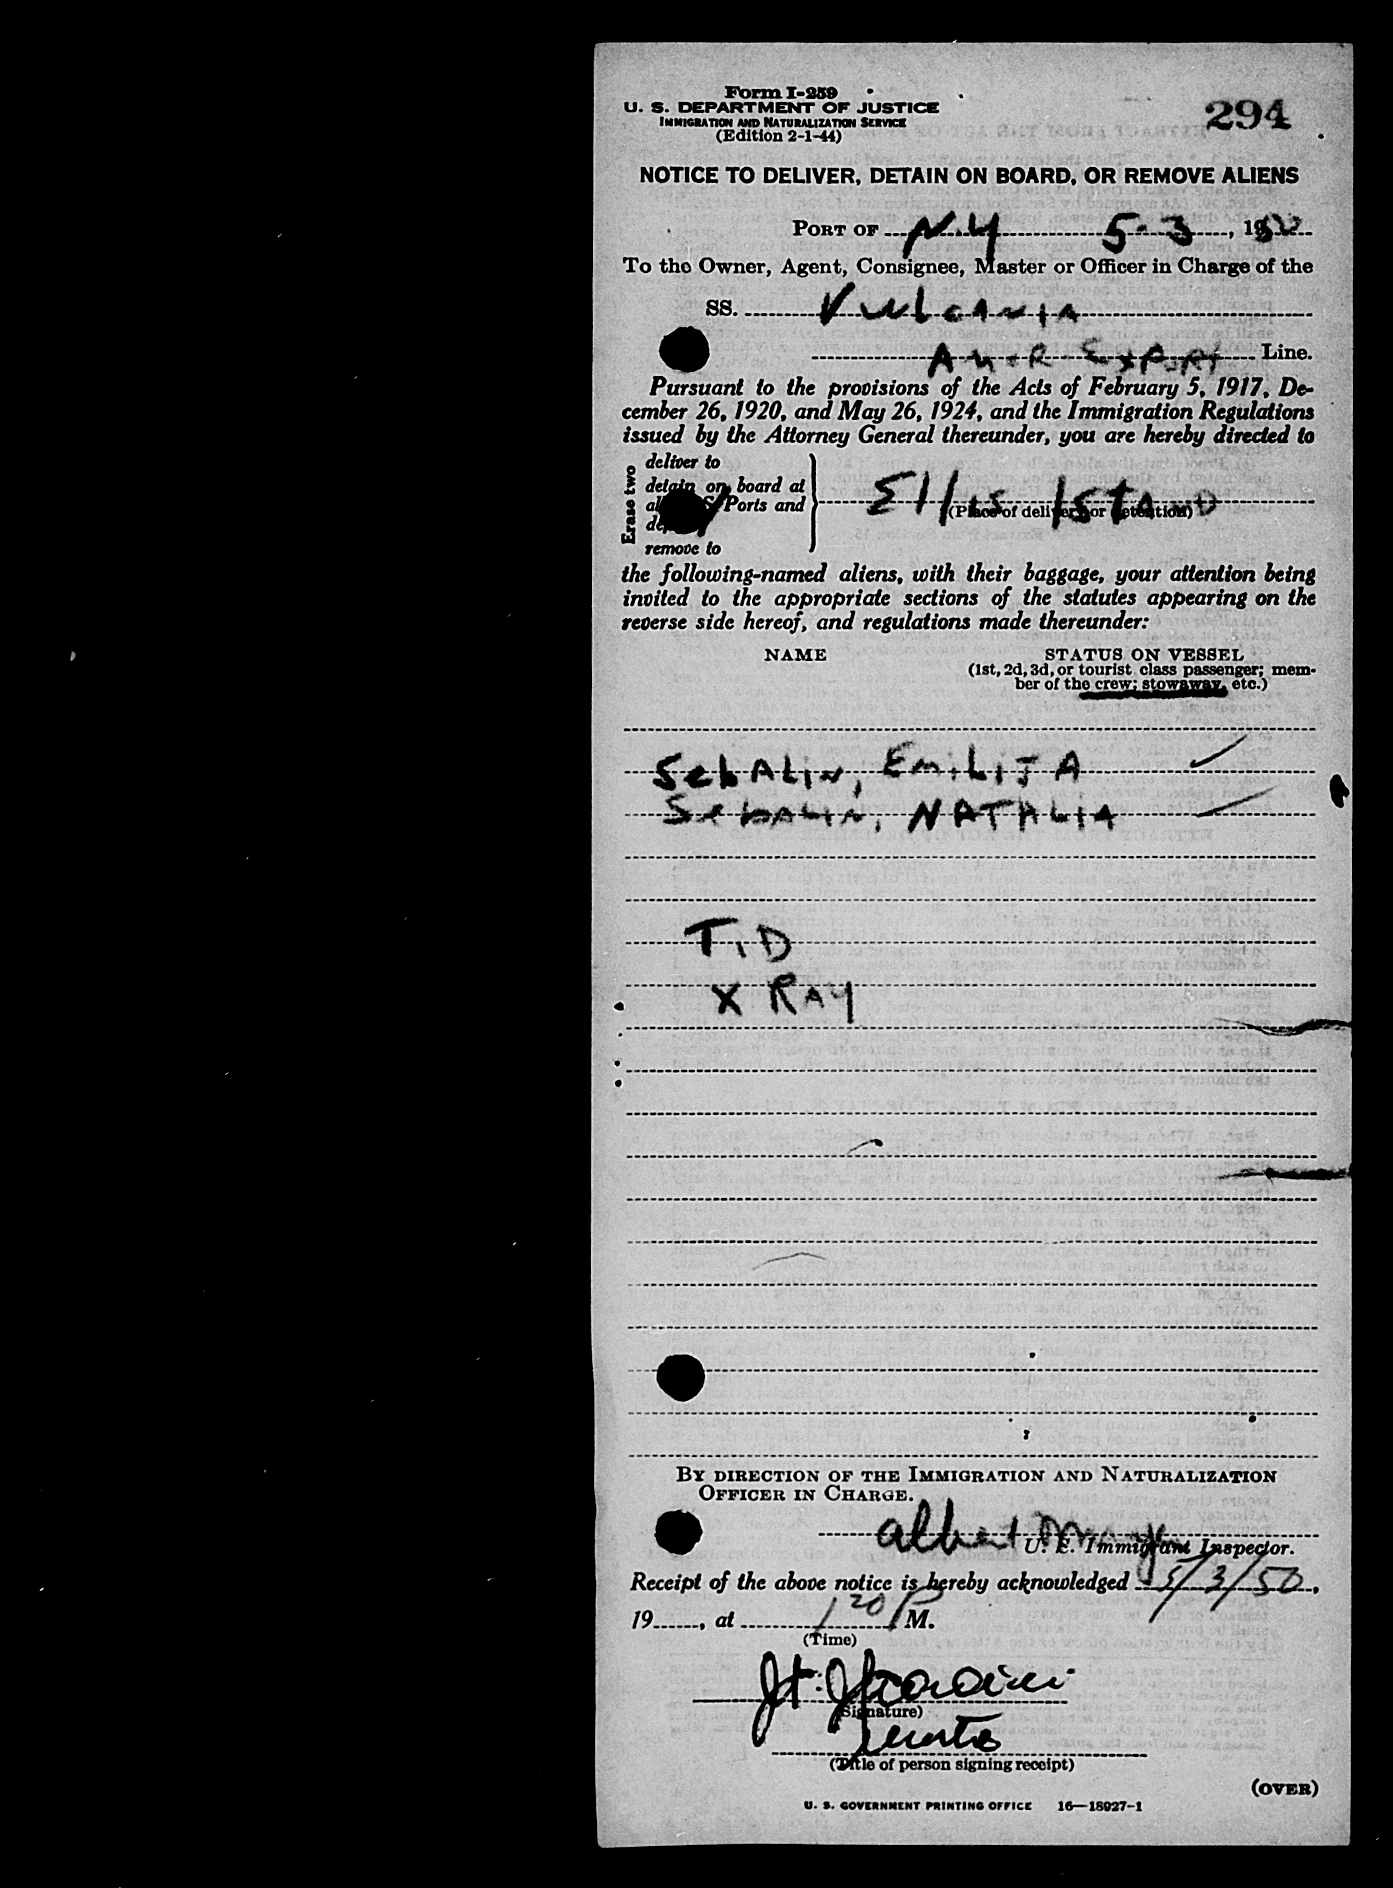 Form I-259
U. S. DEPARTMENT OF JUSTICE
IMMIGRATION AND NATURALIZATION SERVICE
(Edition 2-1-44)
294
NOTICE TO DELIVER, DETAIN ON BOARD, OR REMOVE ALIENS
PORT OF N.Y 5-3, 1950
To the Owner, Agent, Consignee, Master or Officer in Charge of the
SS. Vulcania
Amer Export Line.
Pursuant to the provisions of the Acts of February 5, 1917, De-
cember 26, 1920, and May 26, 1924, and the Immigration Regulations
issued by the Attorney General thereunder, you are hereby directed to
Erase two
deliver to
detain on board at
Ports and
remove to
Ellis Island
(Place of delivery or detention)
the following-named aliens, with their baggage, your attention being
invited to the appropriate sections of the statutes appearing on the
reverse side hereof, and regulations made thereunder:
NAME
STATUS ON VESSEL
(1st, 2d, 3d, or tourist class passenger; mem-
ber of the crew; stowaway, etc.)
SebALiN, EmiLiJA ✓
SebALiN, NATALIA ✓
T.D
X RAY
BY DIRECTION OF THE IMMIGRATION AND NATURALIZATION
OFFICER IN CHARGE.
Albert
U. S. Immigrant Inspector.
Receipt of the above notice is hereby acknowledged 5/3/50,
19____, at 1 20 P M.
(Time)
(Signature)
(Title of person signing receipt)
(OVER)
U. S. GOVERNMENT PRINTING OFFICE 16—18027-1